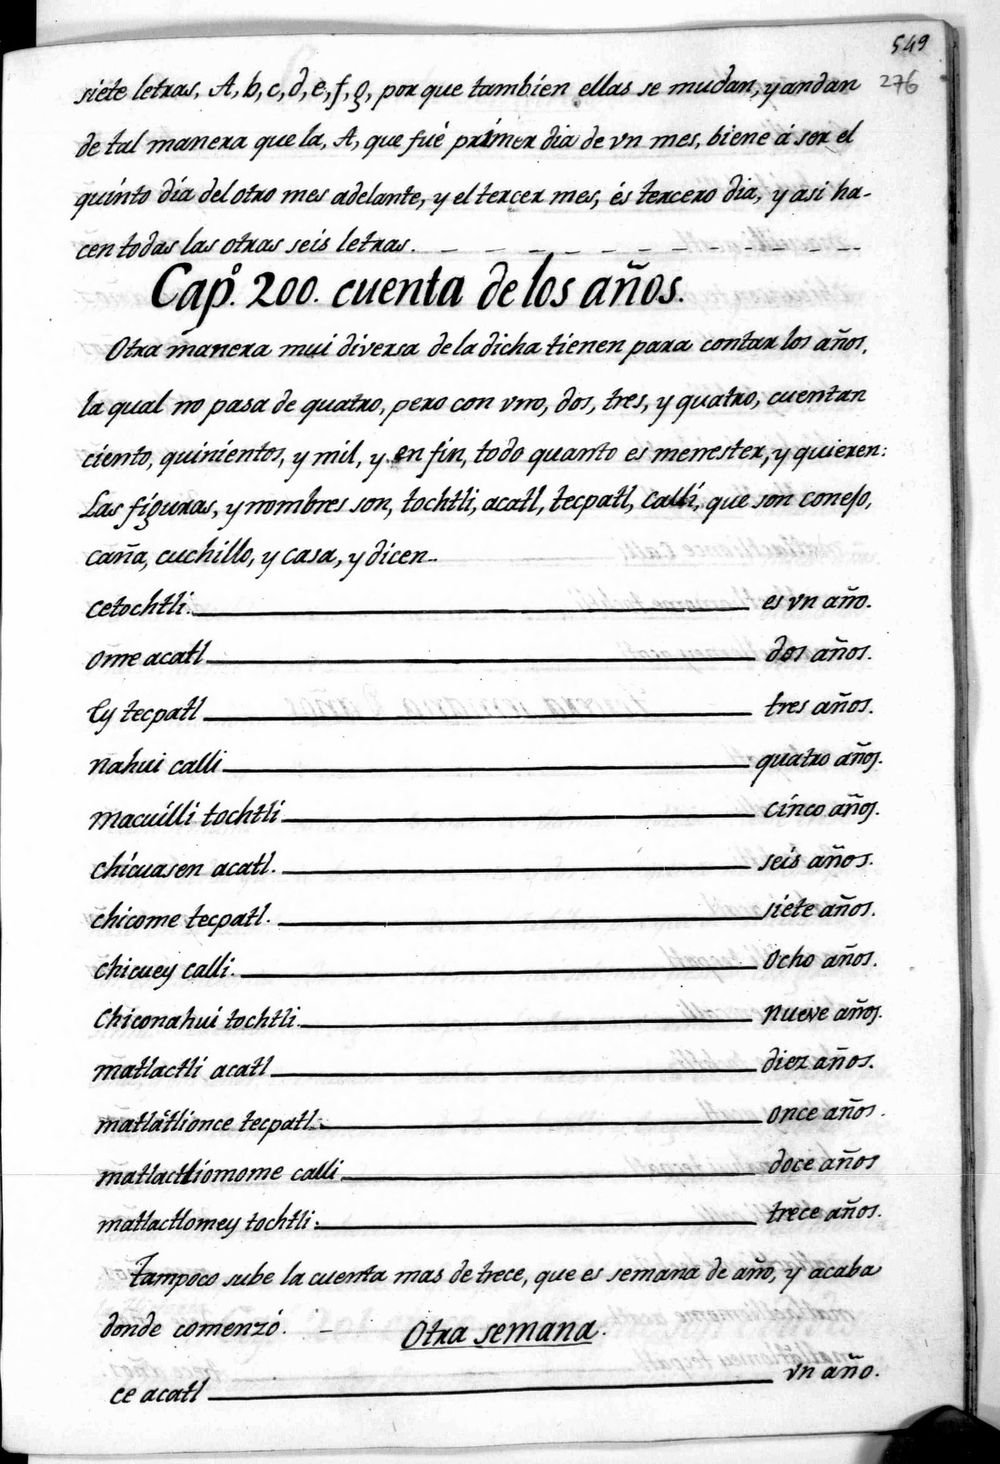 549
276
siete letras, A, b, c, d, e, f, g, por que tambien ellas se mudan, y andan
de tal manera que la, A, que fué primer dia de vn mes, biene á ser el
quinto dia del otro mes adelante, y el tercer mes, és tercero dia, y asi ha-
cen todas las otras seis letras.
Capº. 200. cuenta de los años.
Otra manera mui diversa de la dicha tienen para contar los años,
la qual no pasa de quatro, pero con vno, dos, tres, y quatro, cuentan
ciento, quinientos, y mil, y en fin, todo quanto es menester, y quieren:
Las figuras, y nombres son, tochtli, acatl, tecpatl, calli, que son conejo,
caña, cuchillo, y casa, y dicen..
cetochtli. es vn año.
ome acatl dos años.
Ey tecpatl tres años.
nahui calli quatro años.
macuilli tochtli cinco años.
chicuasen acatl. seis años.
chicome tecpatl. siete años.
chicuey calli. ocho años.
chiconahui tochtli. nueve años.
matlactli acatl diez años.
matlatlionce tecpatl. once años.
matlactliomome calli doce años
matlactlomey tochtli. trece años.
Tampoco sube la cuenta mas de trece, que es semana de año, y acaba
donde comenzó. – Otra semana.
ce acatl vn año.